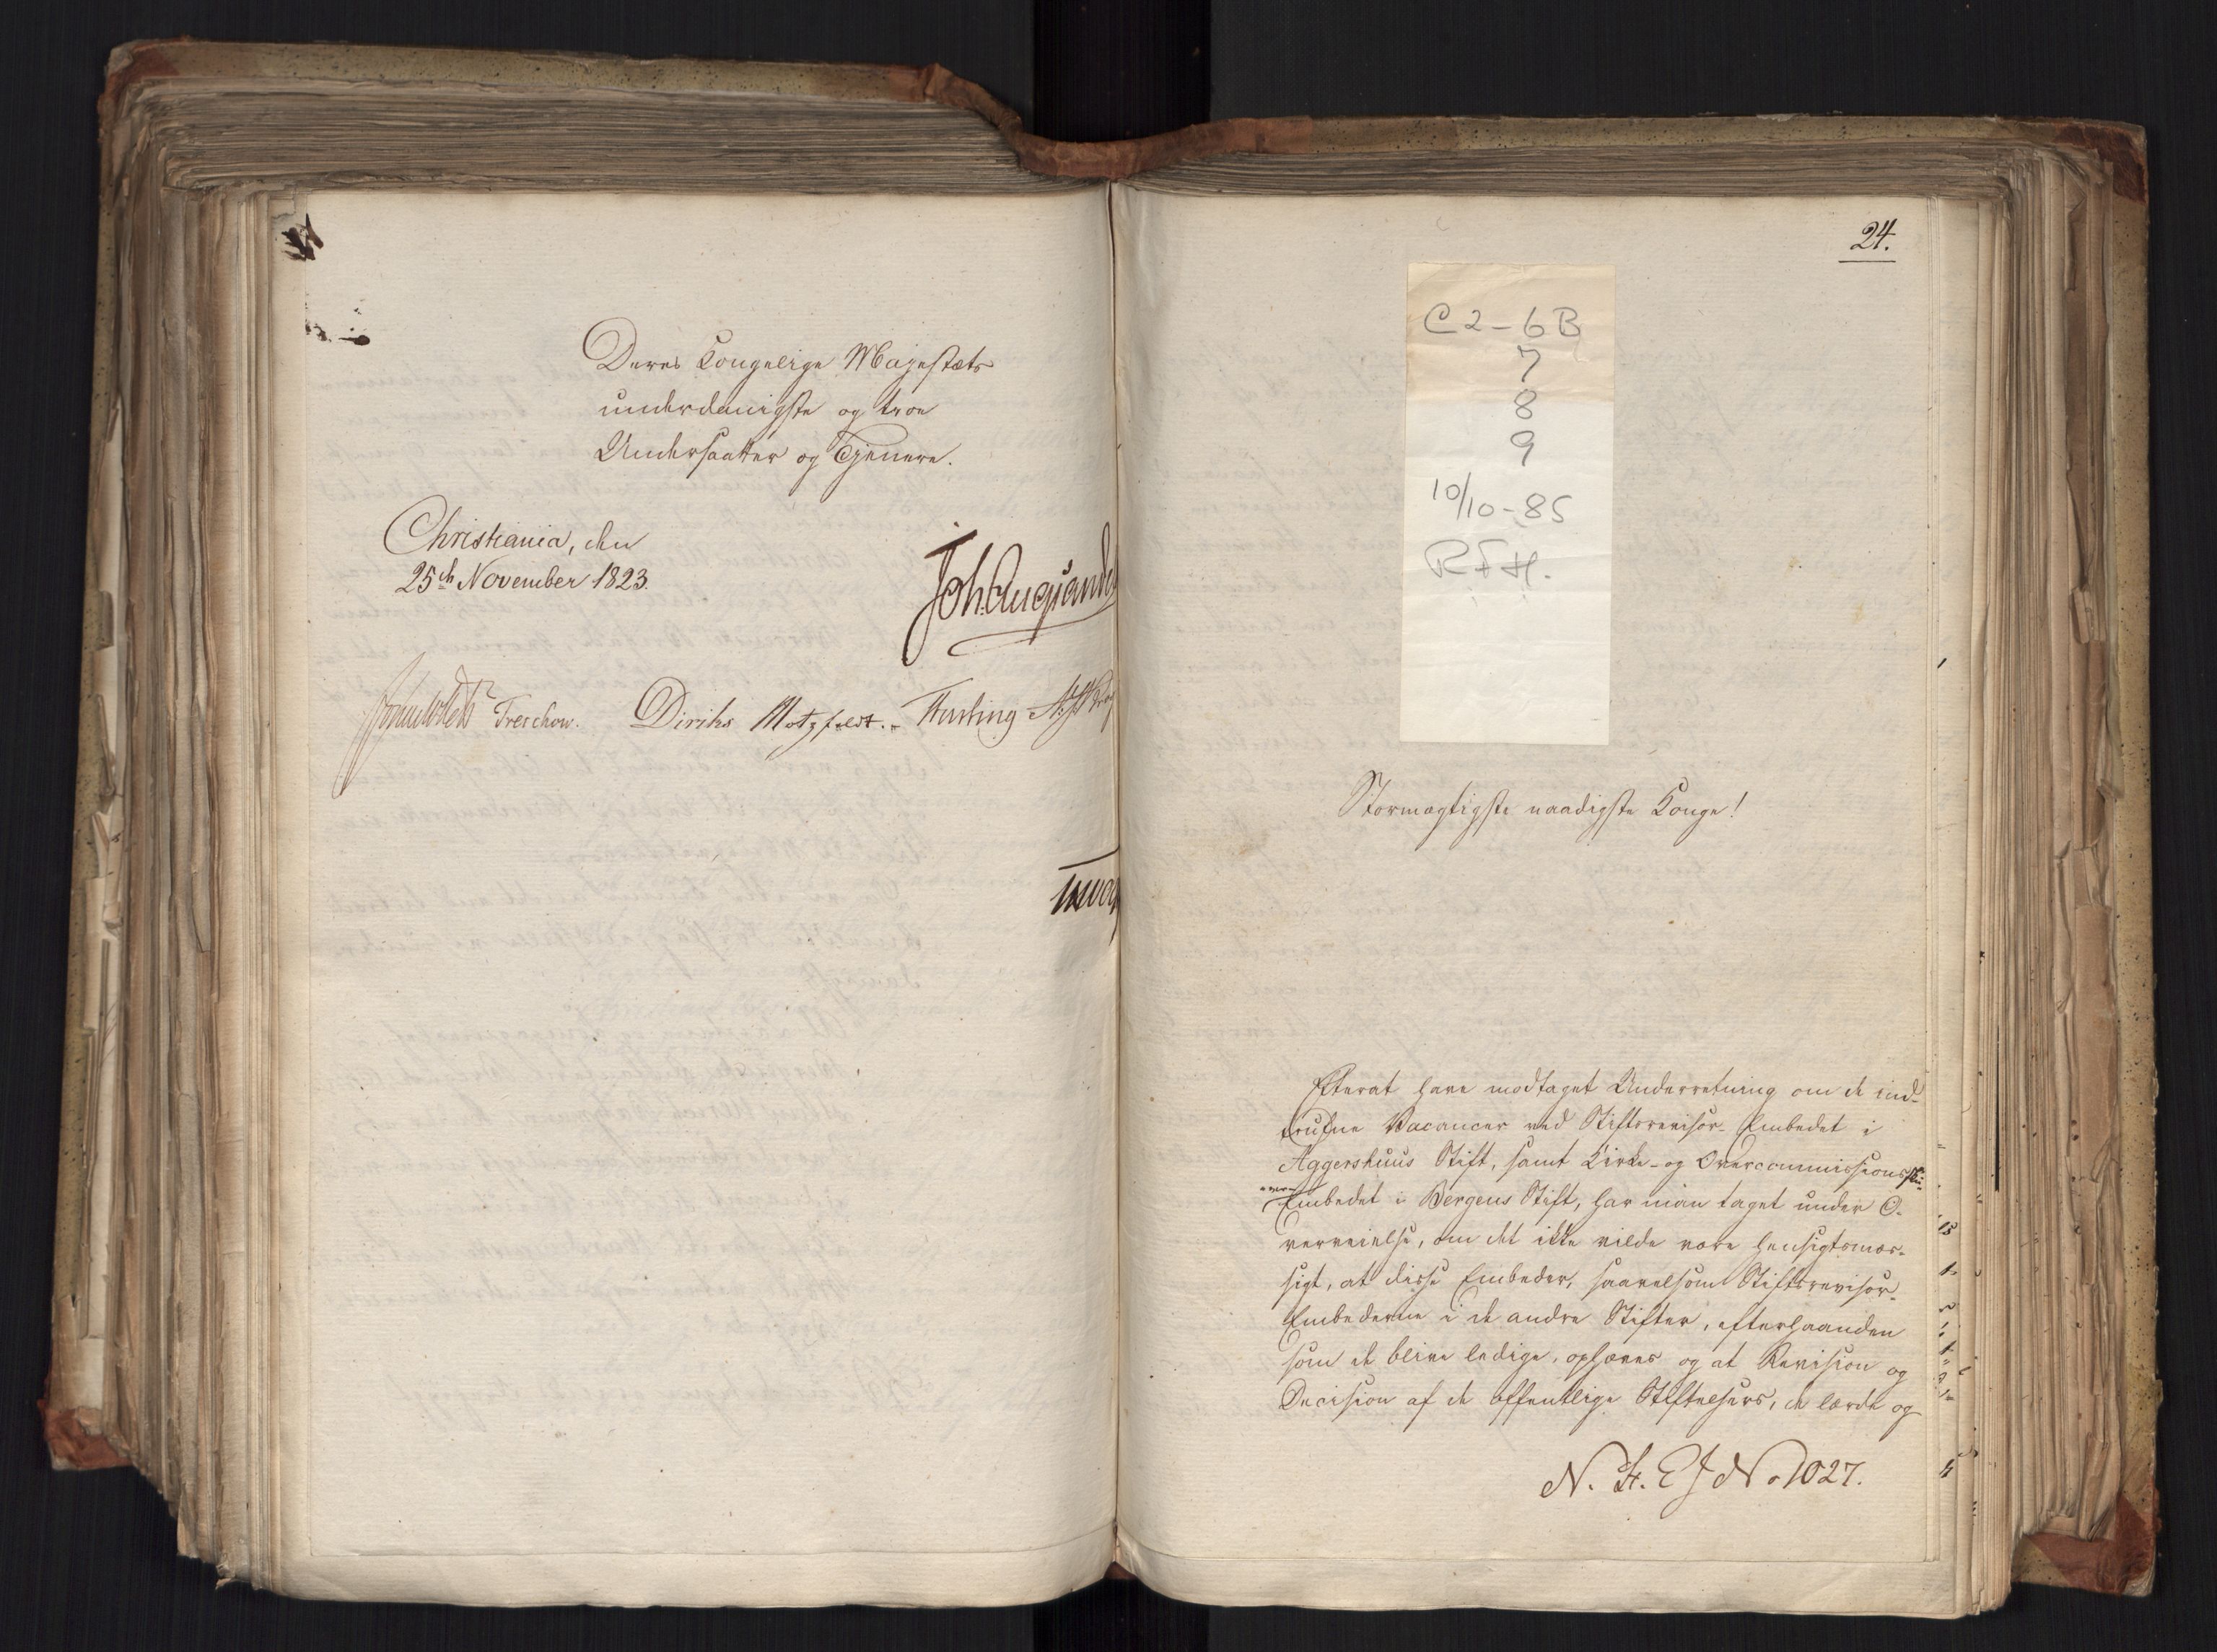 Deres Kongelige Majestæts
underdanigste og troe
Undersaatter og Tjenere.
Christiania, den
25de November 1823.
Joh. Aug. Sande
Sommerhielm Treschow. Diriks Motzfeldt. Fasting
24.
C2-6B
7
8
9
10/10-85
RFH.
Stormægtigste naadigste Konge!
Efterat have modtaget Underretning om de ind-
trufne Vacancer ved Stiftsrevisor-Embedet i
Aggershuus Stift, samt Kirke- og Overcommissionsskri-
ver-
Embedet i Bergens Stift, har man taget under O-
verveielse, om det ikke vilde være hensigtsmæs-
sigt, at disse Embeder, saavelsom Stiftsrevisor-
Embederne i de andre Stifter, efterhaanden
som de blive ledige, ophæves og at Revision og
Decision af de offentlige Stiftelsers, de lærde og
No 1027.